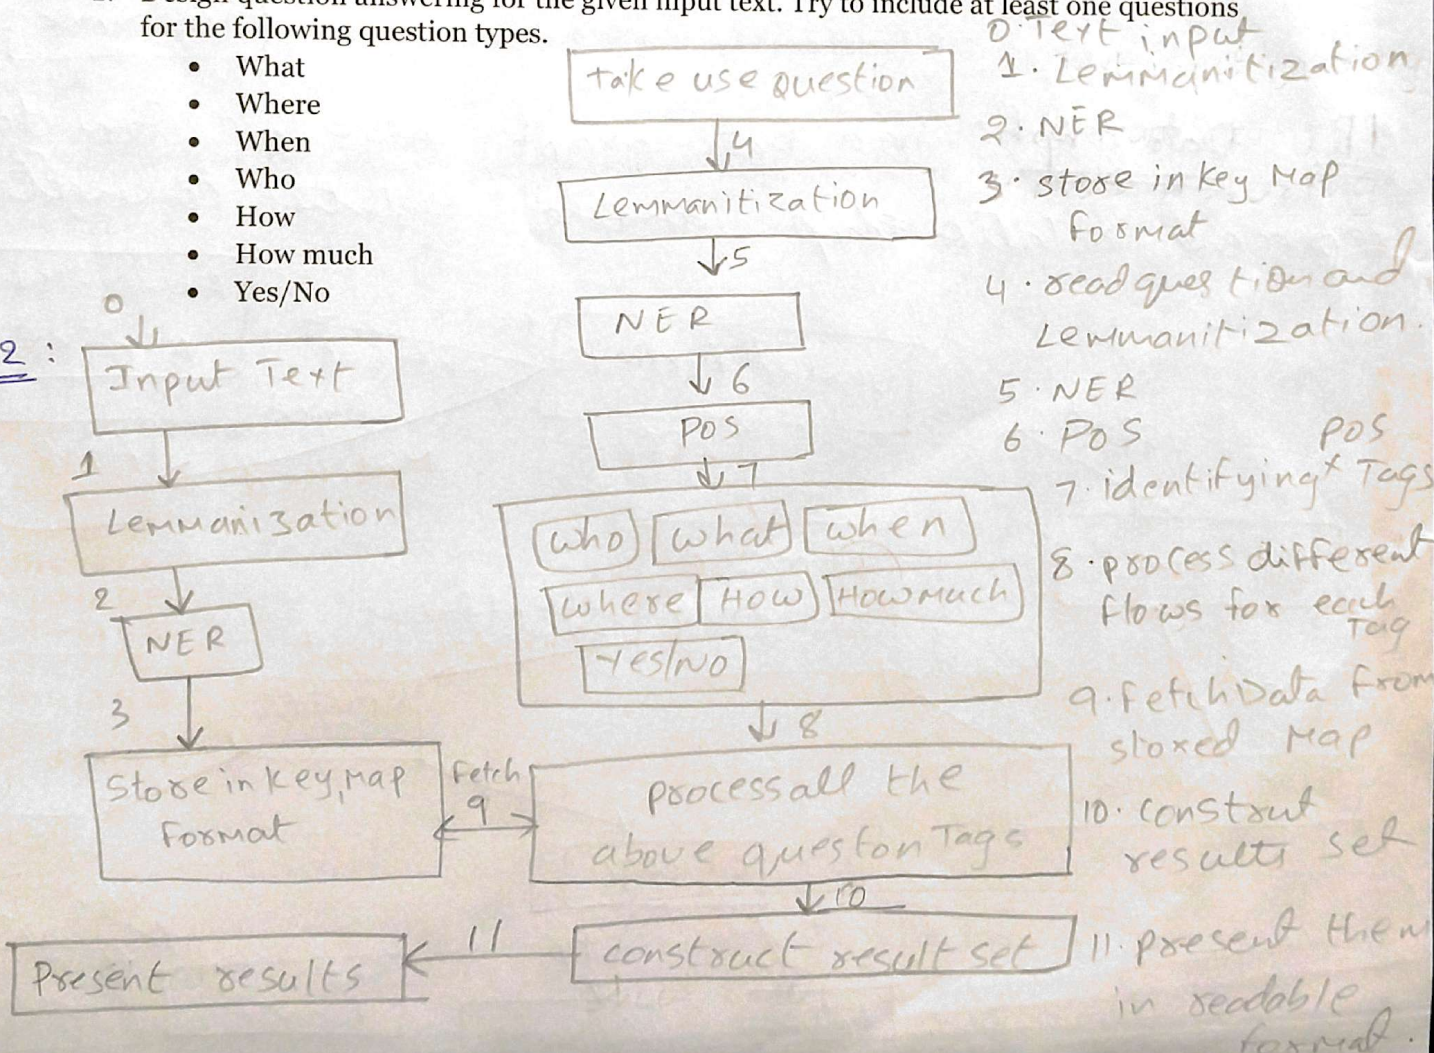 Design question answering for the given input text. Try to include at least one questions
for the following question types.
• What
• Where
• When
• Who
• How
• How much
• Yes/No
2 :
0
Input Text
1
Lemmanization
2
NER
3
Store in key, Map
Format
Fetch
9
take use question
4
Lemmanitization
5
NER
6
POS
7
who what when
where How Howmuch
Yes/No
8
process all the
above queston Tags
10
construct result set
11
Present results
0. Text input
1. Lemmanitization
2. NER
3. store in key Map
format
4. read question and
Lemmanitization.
5. NER
6. POS
POS
7. identifying x Tags
8. process different
flows for each
Tag
9. Fetch Data from
stored Map
10. construt
results set
11. present them
in readable
format.